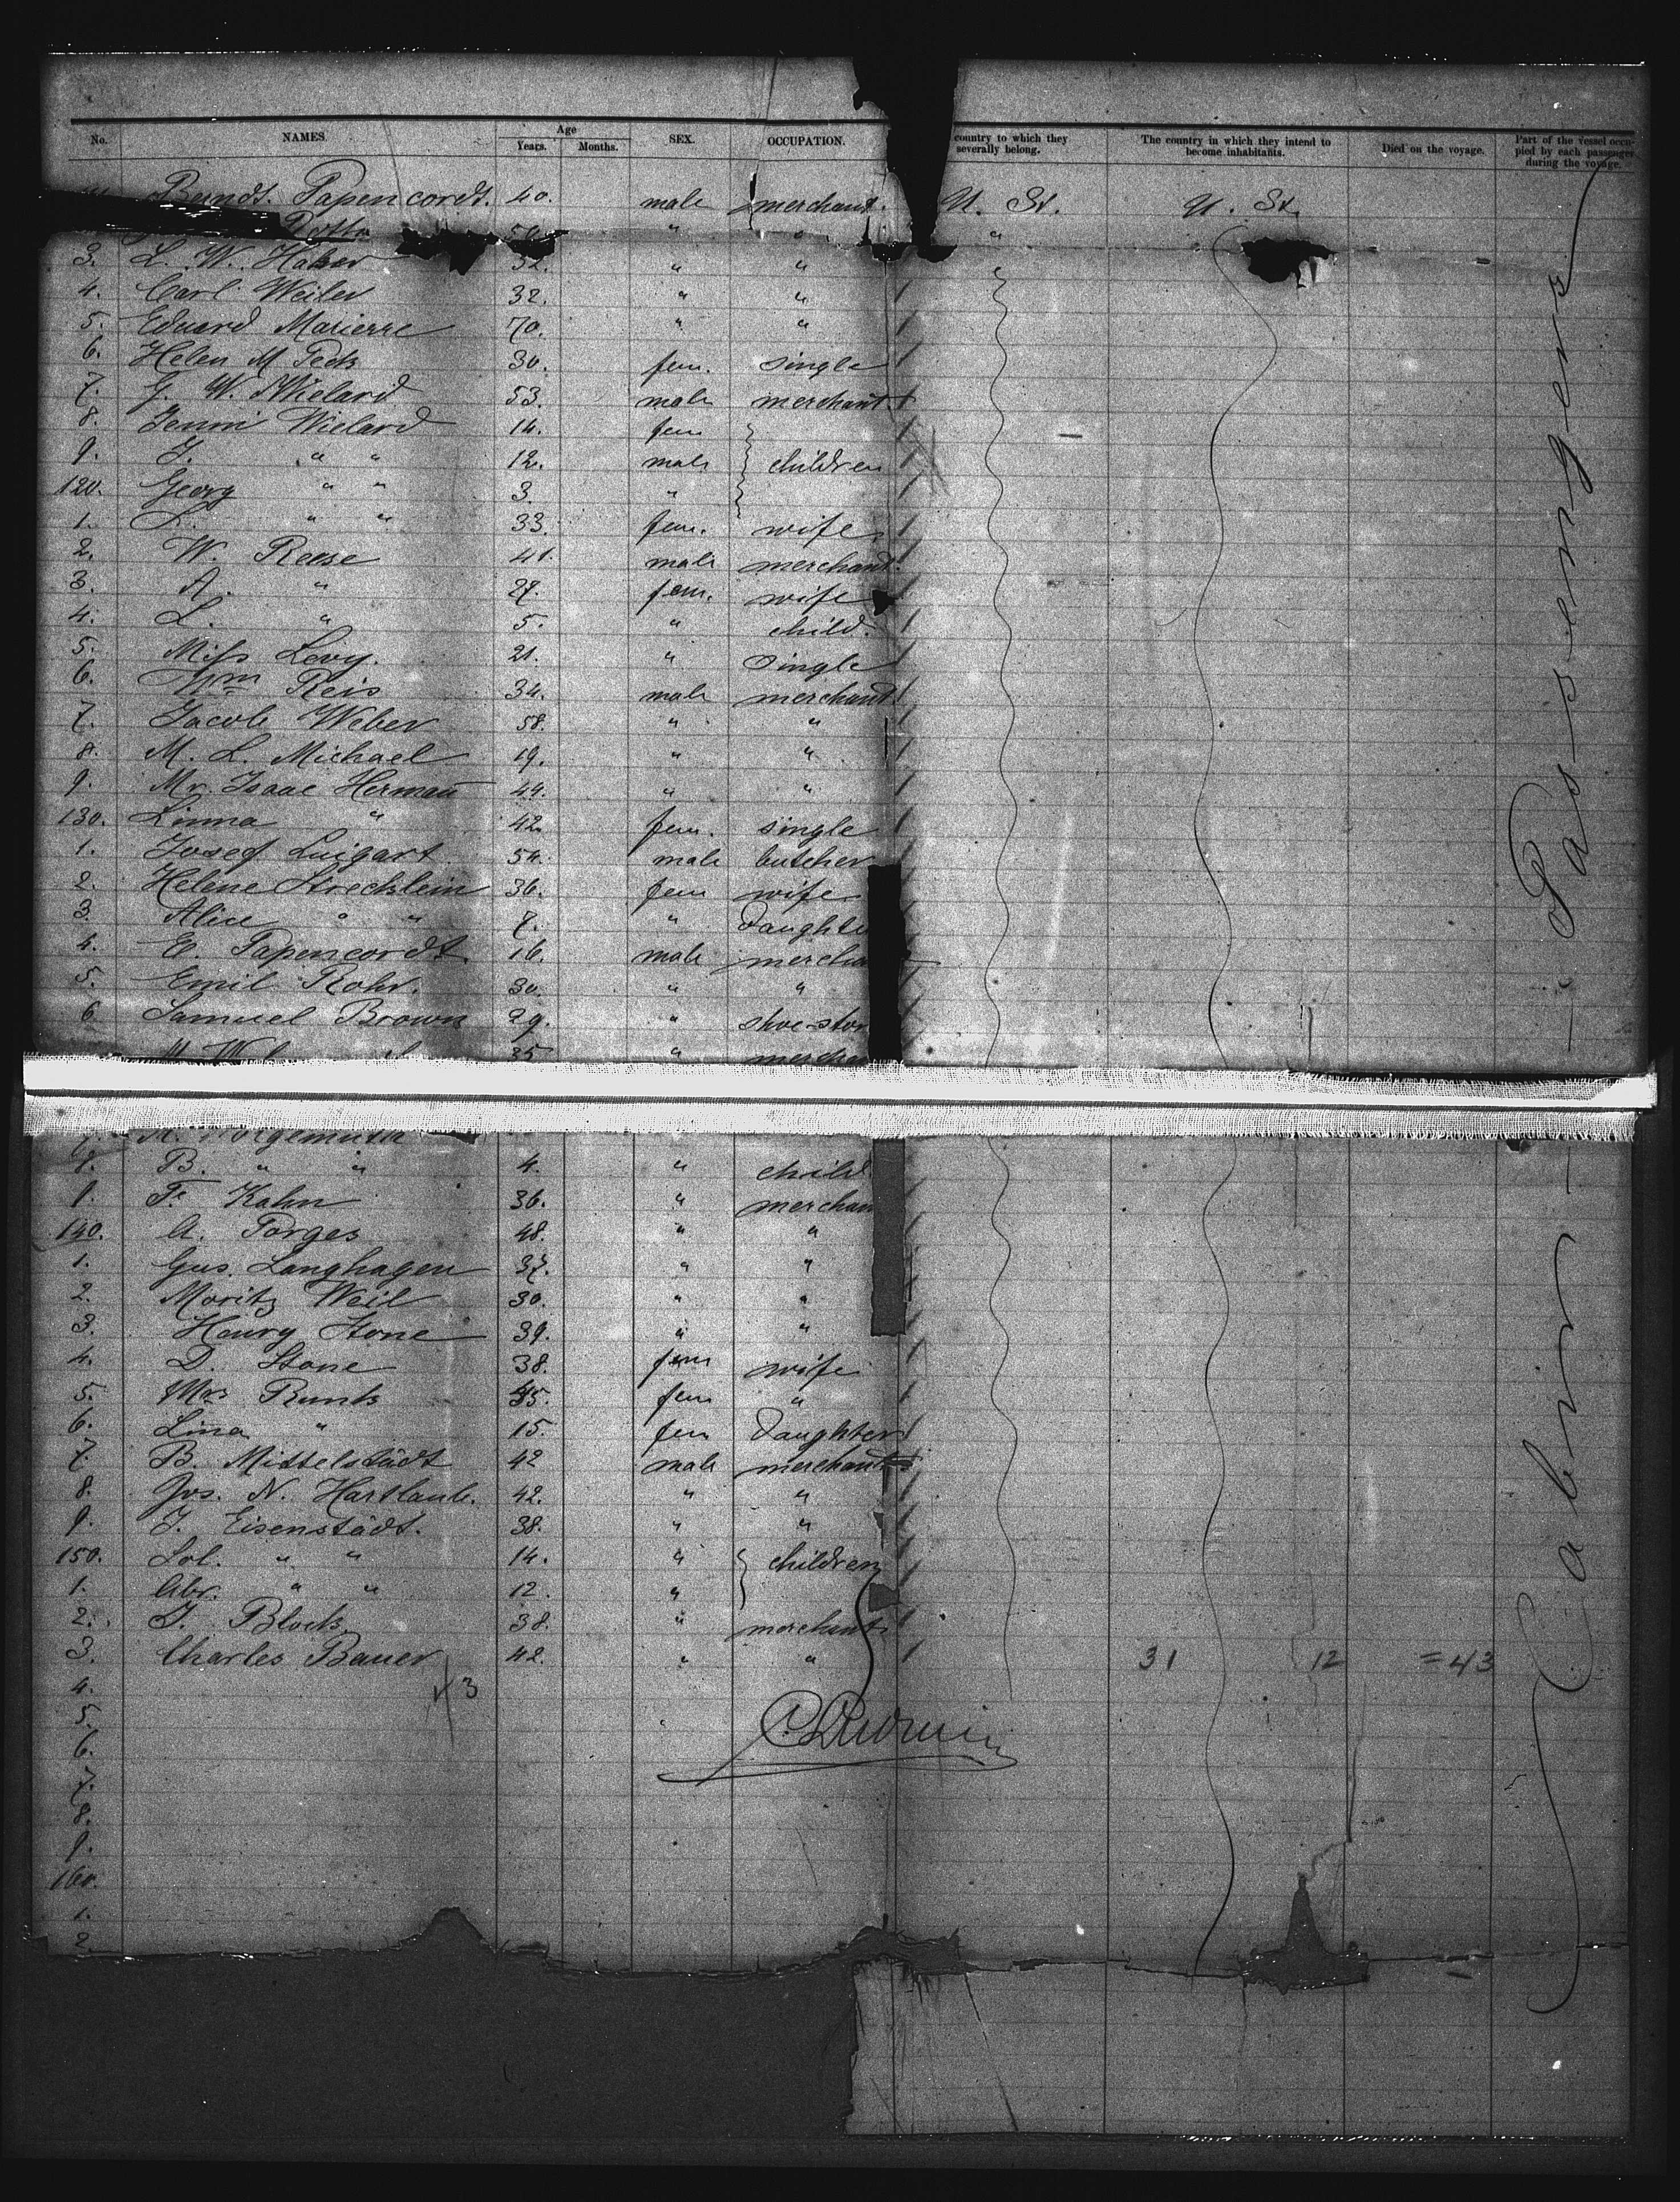 No. NAMES. Age Years. Months. SEX. OCCUPATION. country to which they severally belong. The country in which they intend to become inhabitants. Died on the voyage. Part of the vessel occupied by each passenger during the voyage.
Papencordt. 40. male merchant. U. St. U. St.
50. " " "
3. L. W. Haber 32. " "
4. Carl Weiler 32. " "
5. Eduard 70. " "
6. Helen M Peck 30. fem. single
7. G. W. Wielard 53. male merchant.
8. Jenni Wielard 14. fem
9. J. " " 12. male children
120. Georg " " 3. "
1. L. " " 33. fem. wife
2. W. Reese 41. male merchant.
3. A. " 27. fem. wife
4. L. " 5. " child.
5. Miss Levy. 21. " single
6. Wm Reis 34. male merchant
7. Jacob Weber 58. " "
8. M. L. Michael 19. " "
9. Mr. Isaac Hermañ 44. " "
130. Linna " 42. fem. single
1. Josef Luigart 54. male butcher
2. Helene Strechlein 36. fem wife
3. Alice " " 7. " daughte
4. E. Papencordt. 16. male mercha
5. Emil Rohr. 30. " "
6. Samuel Brown 29. " shoe-stor
35 " merchan
7. M. Morgemuth
B. " " 4. " child
F. Kahn 36. " merchan
140. A. Porges 48. " "
1. Gus. Langhagen 37. " "
2. Moritz Weil 30. " "
3. Henry Stone 39. " "
4. D. Stone 38. fem wife
5. Mrs Runk fem "
6. Lina " 15. fem daughter
7. B. Mittelstädt 42 male merchant
8. Jos. N. Hartlaub. 42. " "
9. J. Eisenstädt. 38. " "
150. Sol. " " 14. " children
1. Abr. " " 12 "
2. J. Block. 38. " merchant
3. Charles Bauer 42. " " 31 12 =43
4. 3
5.
6.
7.
8.
9.
160.
1.
2.
Cabin - Passengers